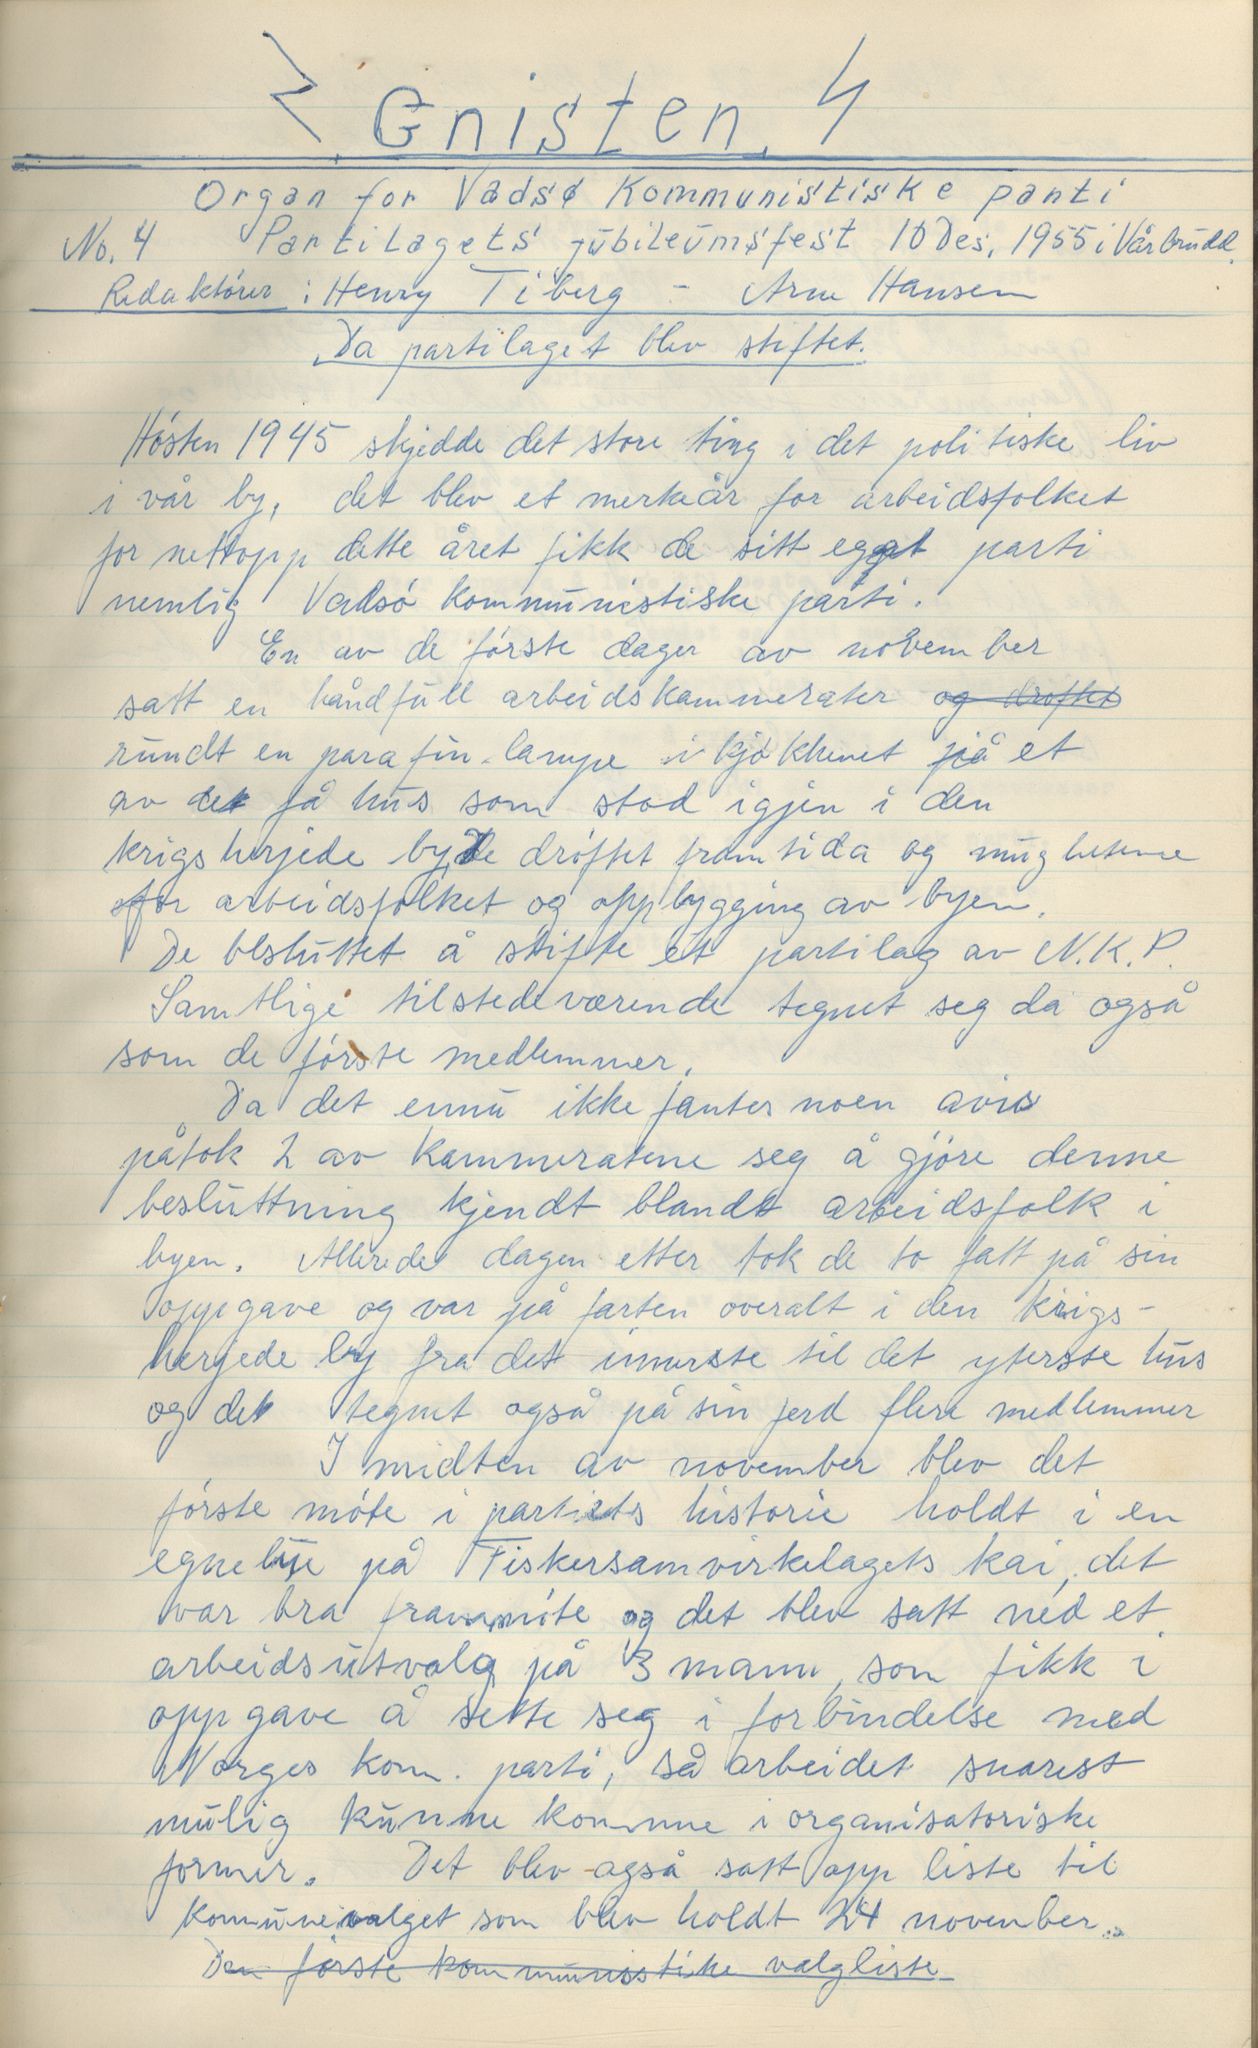 Gnisten
Organ for Vadsø Kommunistiske parti
No. 4 Partilagets jubileumsfest 10 Des. 1955 i Vårbrudd.
Redaktører: Henry Tiberg - Arne Hansen
Da partilaget blev stiftet.
Høsten 1945 skjedde det store ting i det politiske liv
i vår by, det blev et merkeår for arbeidsfolket
for nettopp dette året fikk de sitt eget parti
nemlig Vadsø kommunistiske parti.
En av de første dager av november
satt en håndfull arbeidskammerater og drøftet
rundt en parafin-lampe i kjøkkenet på et
av de få hus som stod igjen i den
krigsherjede by. De drøftet framtida og mughetene
for arbeidsfolket og oppbygging av byen.
De besluttet å stifte et partilag av N.K.P.
Samtlige tilstedeværende tegnet seg da også
som de første medlemmer.
Da det ennu ikke fantes noen avis
påtok 2 av kammeratene seg å gjøre denne
besluttning kjendt blandt arbeidsfolk i
byen. Allerede dagen etter tok de to fatt på sin
oppgave og var på farten overalt i den krigs-
herjede by fra det innerste til det yterste hus
og det tegnet også på sin ferd flere medlemmer
I midten av november blev det
første møte i partiets historie holdt i en
egnebue på Fiskersamvirkelagets kai, det
var bra frammøte og det blev satt ned et
arbeidsutvalg på 3 mann, som fikk i
oppgave å sette seg i forbindelse med
Norges kom. parti, så arbeidet snarest
mulig kunne komme i organisatoriske
former. Det blev også satt opp liste til
kommunevalget som blev holdt 24 november.
Den første kommunisstike valgliste